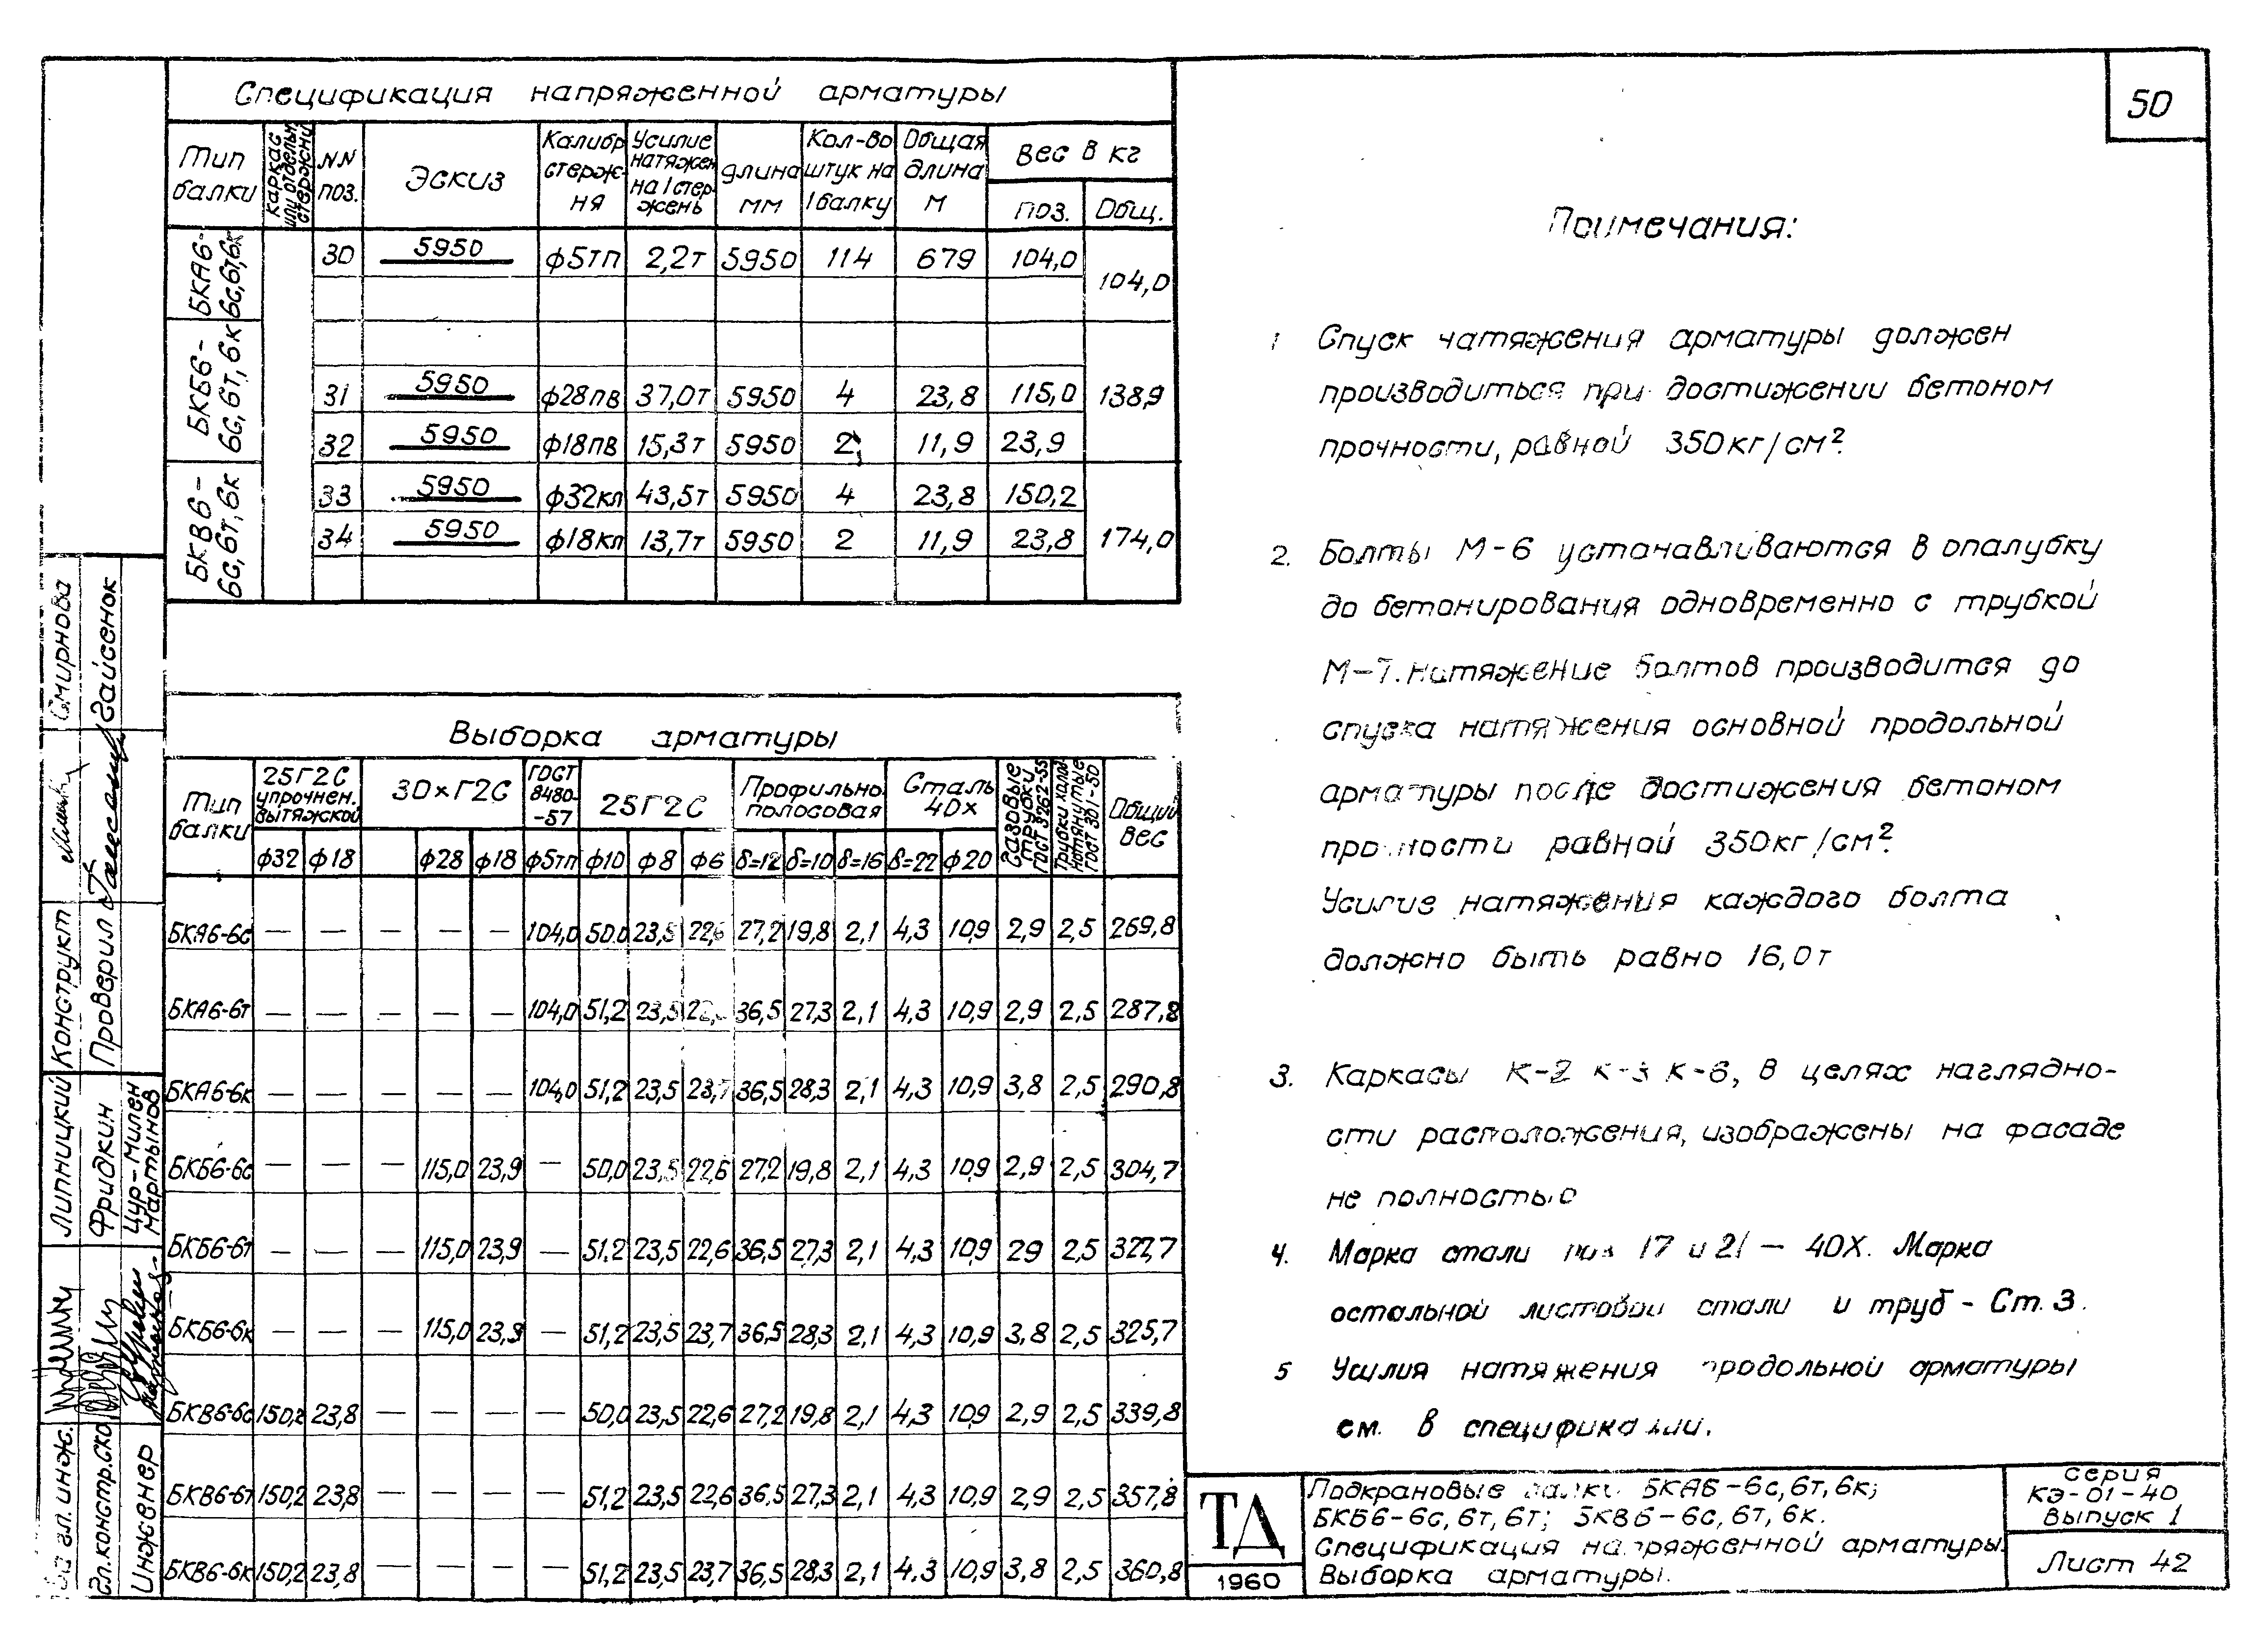 50
Спецификация напряженной арматуры
Тип балки | каркас или отдельн. стержни | NN поз. | Эскиз | Калибр стерж-ня | Усилие натяжен на 1 стер-жень | длина мм | Кол-во штук на 1 балку | Общая длина м | Вес в кг поз. | Общ.
БКА6-6с,6т,6к | 30 | 5950 | ф5тп | 2,2т | 5950 | 114 | 679 | 104,0 | 104,0
БКБ6-6с,6т,6к | 31 | 5950 | ф28пв | 37,0т | 5950 | 4 | 23,8 | 115,0 | 138,9
32 | 5950 | ф18пв | 15,3т | 5950 | 2 | 11,9 | 23,9
БКВ6-6с,6т,6к | 33 | 5950 | ф32кп | 43,5т | 5950 | 4 | 23,8 | 150,2 | 174,0
34 | 5950 | ф18кп | 13,7т | 5950 | 2 | 11,9 | 23,8
Выборка арматуры
Тип балки | 25Г2С упрочнен. вытяжкой | 30хГ2С | ГОСТ 8480-57 | 25Г2С | Профильно полосовая | Сталь 40х | Газовые трубки ГОСТ 3262-55 | Трубки холоднотянутые ГОСТ 301-50 | Общий вес
ф32 | ф18 | ф28 | ф18 | ф5тп | ф10 | ф8 | ф6 | δ=12 | δ=10 | δ=16 | δ=22 | ф20
БКА6-6с | — | — | — | — | — | 104,0 | 50,0 | 23,5 | 22,6 | 27,2 | 19,8 | 2,1 | 4,3 | 10,9 | 2,9 | 2,5 | 269,8
БКА6-6т | — | — | — | — | — | 104,0 | 51,2 | 23,5 | 36,5 | 27,3 | 2,1 | 4,3 | 10,9 | 2,9 | 2,5 | 287,8
БКА6-6к | — | — | — | — | — | 104,0 | 51,2 | 23,5 | 23,7 | 36,5 | 28,3 | 2,1 | 4,3 | 10,9 | 3,8 | 2,5 | 290,8
БКБ6-6с | — | — | — | 115,0 | 23,9 | — | 50,0 | 23,5 | 22,6 | 27,2 | 19,8 | 2,1 | 4,3 | 10,9 | 2,9 | 2,5 | 304,7
БКБ6-6т | — | — | — | 115,0 | 23,9 | — | 51,2 | 23,5 | 22,6 | 36,5 | 27,3 | 2,1 | 4,3 | 10,9 | 29 | 2,5 | 322,7
БКБ6-6к | — | — | — | 115,0 | 23,9 | — | 51,2 | 23,5 | 23,7 | 36,5 | 28,3 | 2,1 | 4,3 | 10,9 | 3,8 | 2,5 | 325,7
БКВ6-6с | 150,2 | 23,8 | — | — | — | — | 50,0 | 23,5 | 22,6 | 27,2 | 19,8 | 2,1 | 4,3 | 10,9 | 2,9 | 2,5 | 339,8
БКВ6-6т | 150,2 | 23,8 | — | — | — | — | 51,2 | 23,5 | 22,6 | 36,5 | 27,3 | 2,1 | 4,3 | 10,9 | 2,9 | 2,5 | 357,8
БКВ6-6к | 150,2 | 23,8 | — | — | — | — | 51,2 | 23,5 | 23,7 | 36,5 | 28,3 | 2,1 | 4,3 | 10,9 | 3,8 | 2,5 | 360,8
Примечания:
1 Спуск натяжения арматуры должен
производиться при достижении бетоном
прочности, равной 350кг/см².
2. Болты М-6 устанавливаются в опалубку
до бетонирования одновременно с трубкой
М-7. Натяжение болтов производится до
спуска натяжения основной продольной
арматуры после достижения бетоном
прочности равной 350кг/см².
Усилие натяжения каждого болта
должно быть равно 16,0т
3. Каркасы К-2 К-3 К-6, в целях наглядно-
сти расположения, изображены на фасаде
не полностью
4. Марка стали поз 17 и 21 — 40Х. Марка
остальной листовой стали и труб - Ст. 3.
5 Усилия натяжения продольной арматуры
см. в спецификации.
ТД
1960
Подкрановые балки БКА6-6с,6т,6к;
БКБ6-6с,6т,6т; БКВ6-6с,6т,6к.
Спецификация напряженной арматуры.
Выборка арматуры.
серия
КЭ-01-40
Выпуск 1
Лист 42
Смирнова
Гайсенок
Конструкт
Проверил
Липницкий
Фридкин
Цур-Милен
Мартынов
гл. инж.
Гл.констр.СКО
Инженер